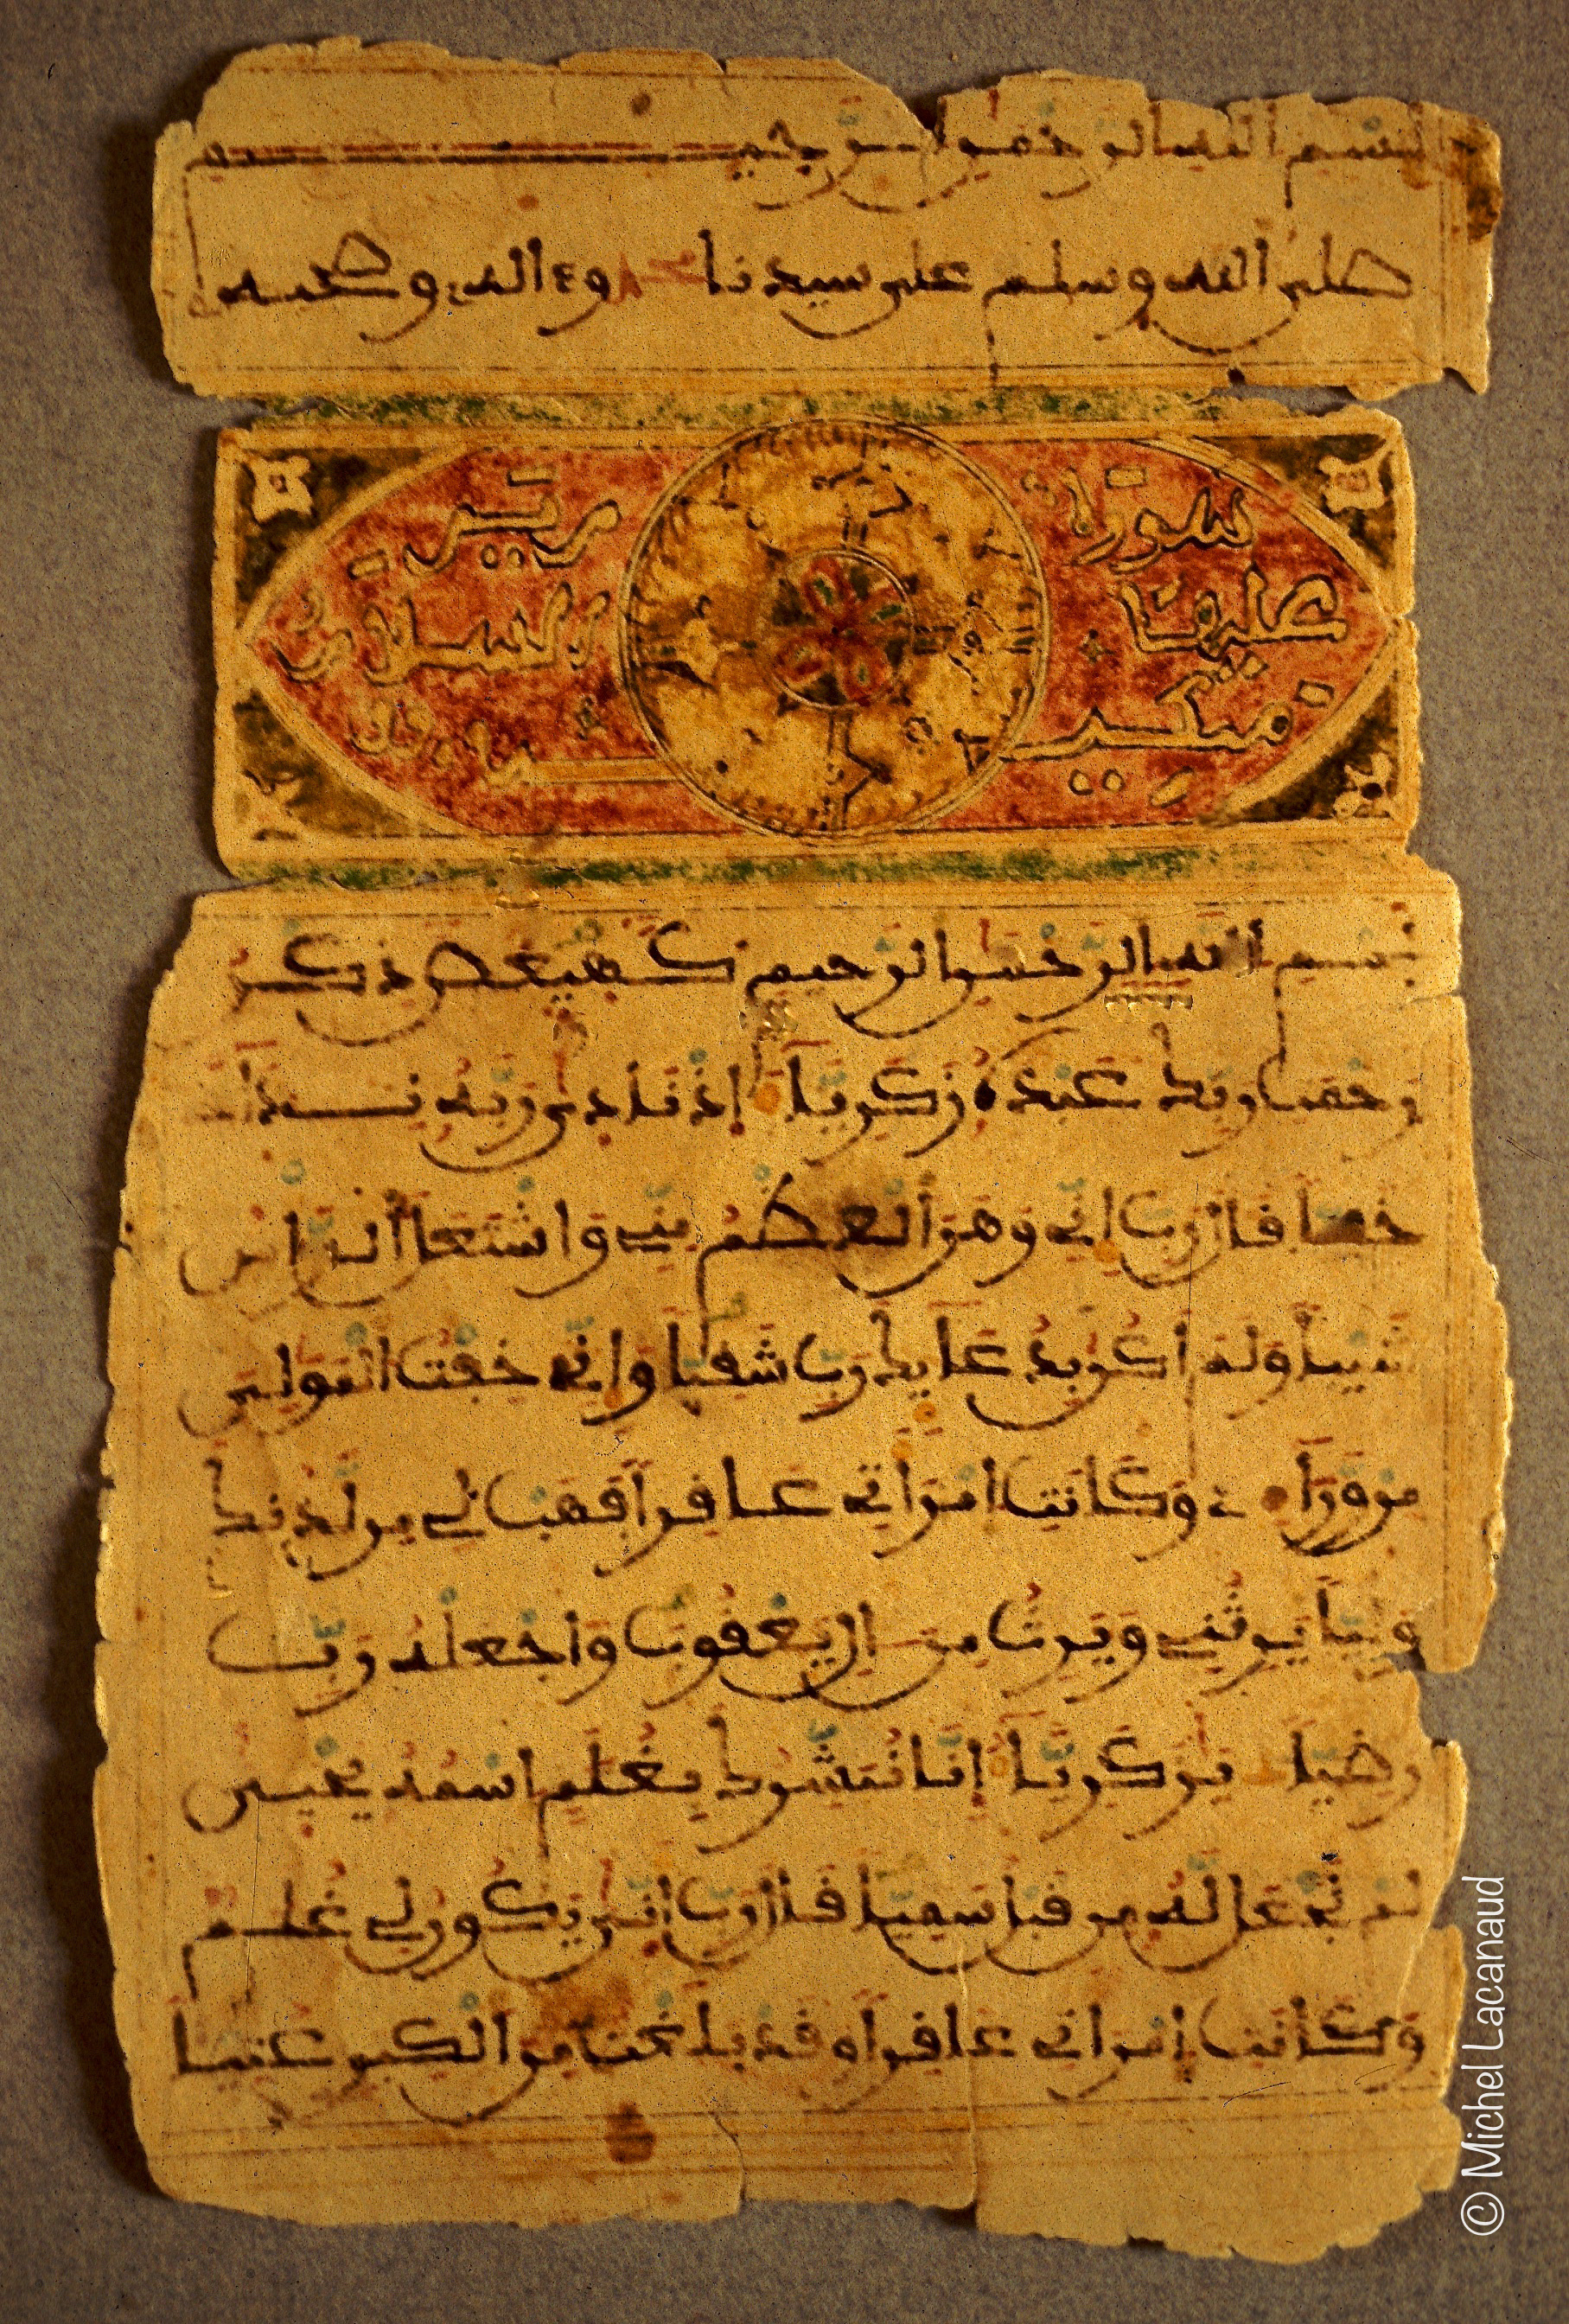 بسم الله الرحمن الرحيم
صلى الله وسلم على سيدنا محمد وءاله وصحبه
سورة مريم
عليها السلام
مكية
بسم الله الرحمن الرحيم كهيعص ذكر
رحمت ربك عبده زكرياء اذ نادى ربه نداء
خفيا قال رب اني وهن العظم مني واشتعل الراس
شيبا ولم اكن بدعايك رب شقيا واني خفت الموالي
من وراءي وكانت امراتي عاقرا فهب لي من لدنك
وليا يرثني ويرث من ال يعقوب واجعله رب
رضيا يزكرياء انا نبشرك بغلم اسمه يحيى
لم نجعل له من قبل سميا قال رب انى يكون لي غلم
وكانت امراتي عاقرا وقد بلغت من الكبر عتيا
© Michel Lacanaud